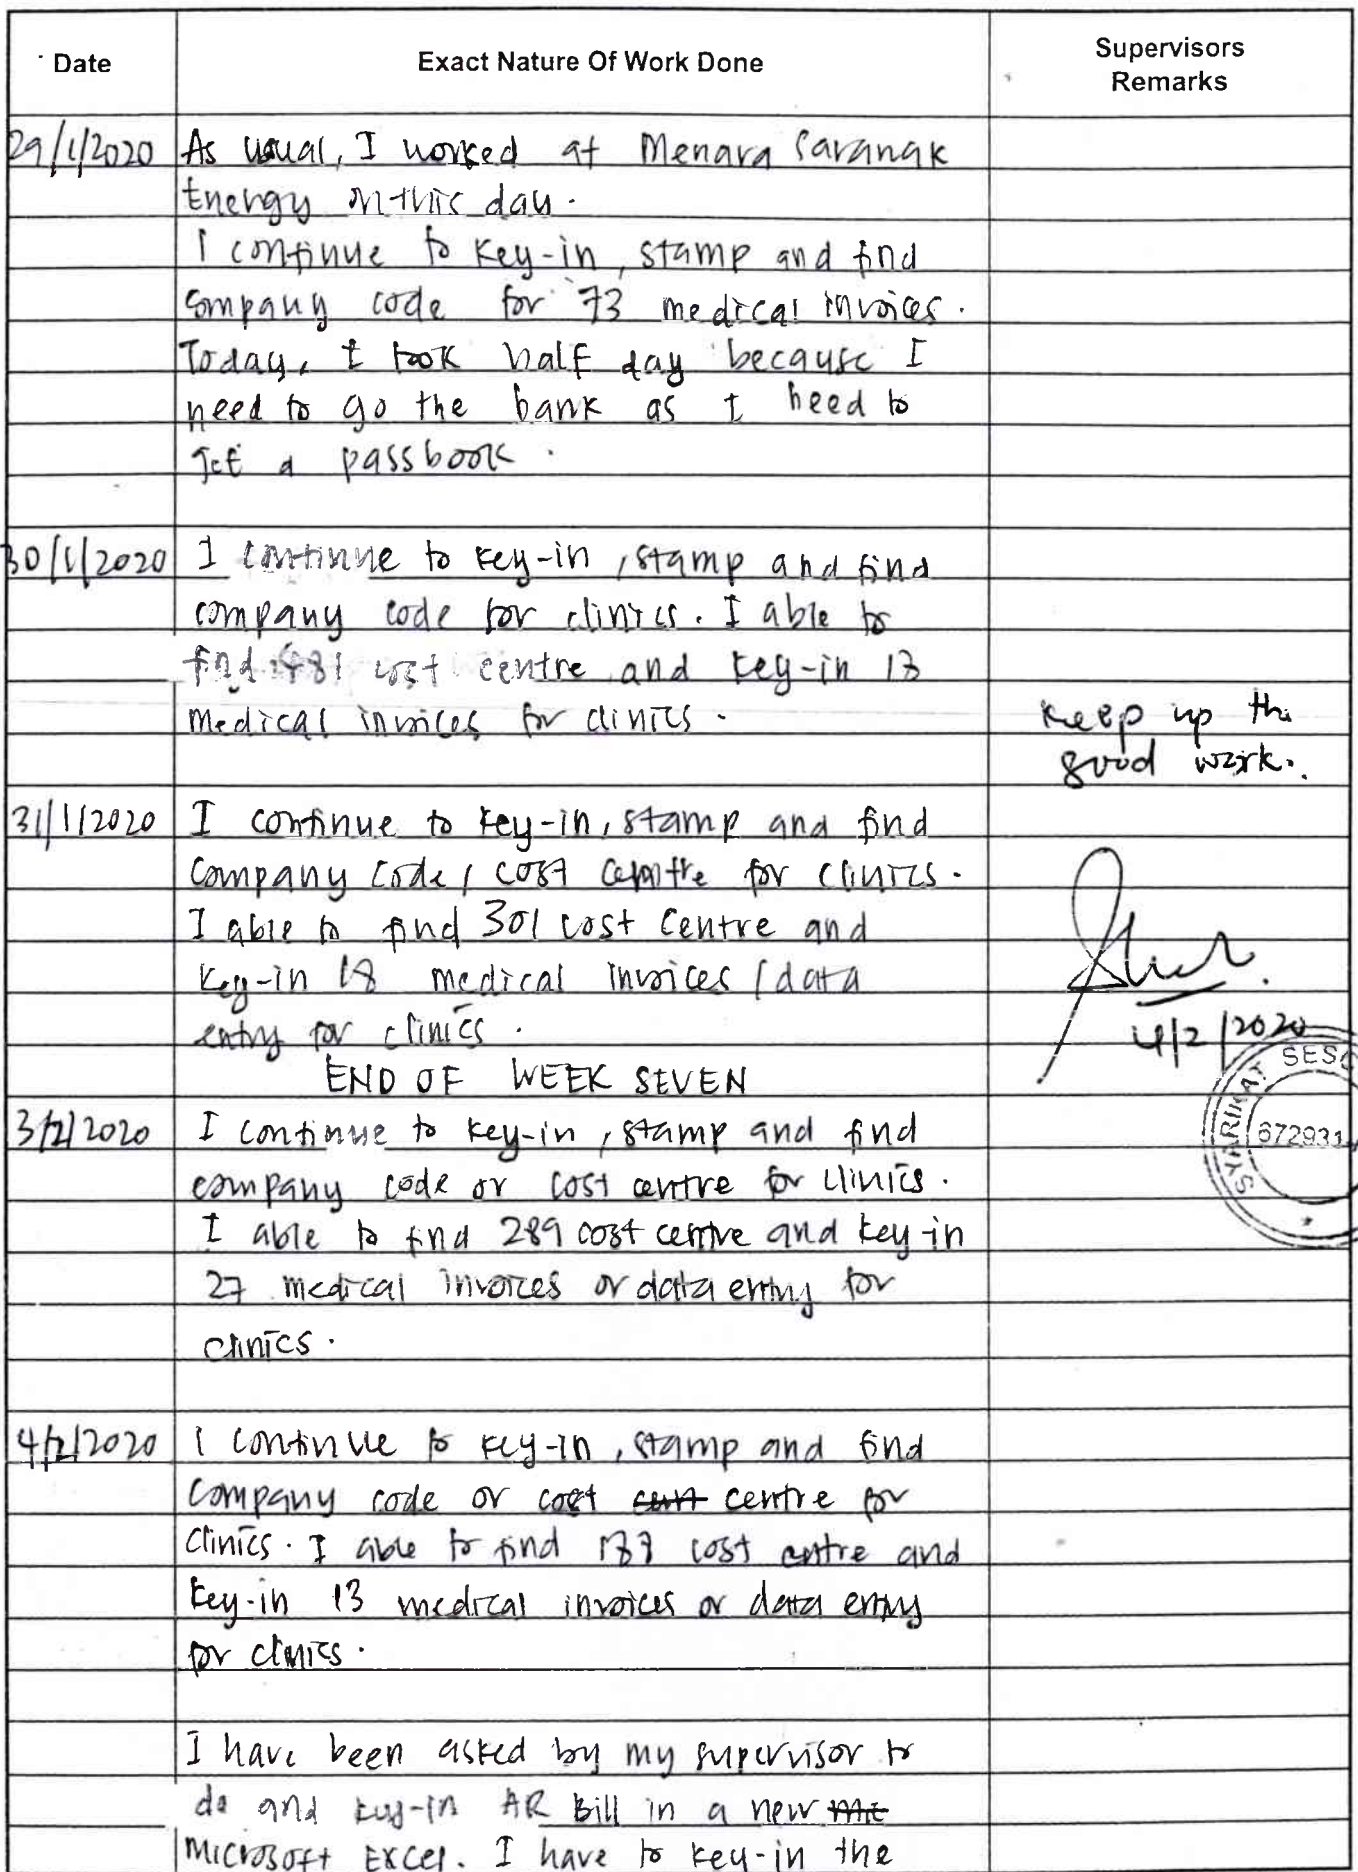 Date
Exact Nature Of Work Done
Supervisors
Remarks
29/1/2020
As usual, I worked at Menara Sarawak
Energy on this day.
I continue to key-in, stamp and find
company code for 73 medical invoices.
Today, I took half day because I
need to go the bank as I need to
get a passbook.
30/1/2020
I continue to key-in, stamp and find
company code for clinics. I able to
find 481 cost centre and key-in 13
medical invoices for clinics.
Keep up the
good work.
31/1/2020
I continue to key-in, stamp and find
Company Code / cost centre for clinics.
I able to find 301 cost centre and
key-in 18 medical invoices / data
entry for clinics.
4/2/2020
END OF WEEK SEVEN
3/2/2020
I continue to key-in, stamp and find
company code or cost centre for clinics.
I able to find 289 cost centre and key-in
27 medical invoices or data entry for
clinics.
SYARIKAT SESC
672931
4/2/2020
I continue to key-in, stamp and find
Company code or cost centre for
clinics. I able to find cost centre and
key-in 13 medical invoices or data entry
for clinics.
I have been asked by my supervisor to
do and key-in AR Bill in a new
Microsoft Excel. I have to key-in the